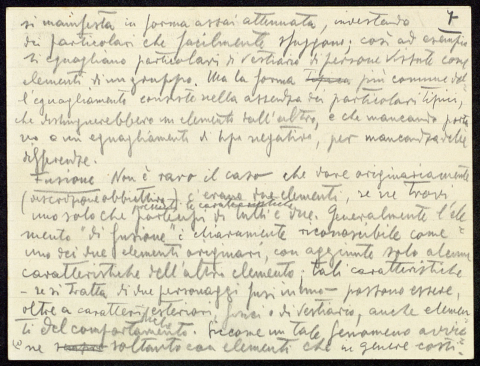 4
si manifesta in forma assai attenuata, investendo
dei particolari che facilmente sfuggono; così ad esempio
si eguagliano particolari di vestiario di persone vissute come
elementi di un gruppo. Ma la forma più comune del
l'eguagliamento consiste nella assenza dei particolari tipici,
che distinguerebbero un elemento dall'altro, e che mancando porta
no a un eguagliamento di tipo negativo, per mancanza delle
differenze.
Fusione Non è raro il caso che dove originariamente
(descrizione obbiettiva) c'erano due elementi, se ne trovi
uno solo che presenti le caratteristiche
partecipi di tutti e due. Generalmente l'ele
mento "di fusione" è chiaramente riconoscibile come
uno dei due elementi originari, con aggiunte solo alcune
caratteristiche dell'altro elemento; tali caratteristiche
- se si tratta di due personaggi fusi in uno - possono essere,
oltre a caratteri esteriori, fisici o di vestiario, anche elemen
ti del comportamento. Siccome un tale fenomeno avvie
ne soltanto con elementi che in genere costi-